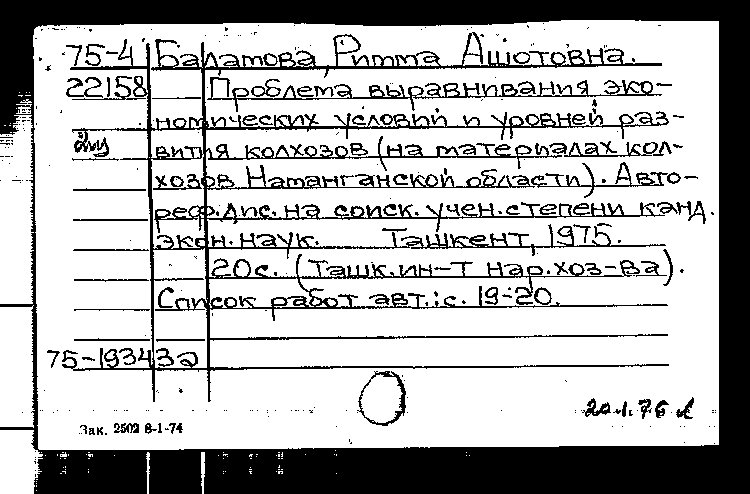 75-4 Балатова, Римма Ашотовна.
22158 Проблема выравнивания эко-
номических условий и уровней раз-
вития колхозов (на материалах кол-
хозов Наманганской области). Авто-
реф. дис. на соиск. учен. степени канд.
экон. наук. Ташкент, 1975.
20 с. (Ташк. ин-т нар. хоз-ва).
Список работ авт.: с. 19-20.
75-19343а
20.1.76
Зак. 2502 8-1-74